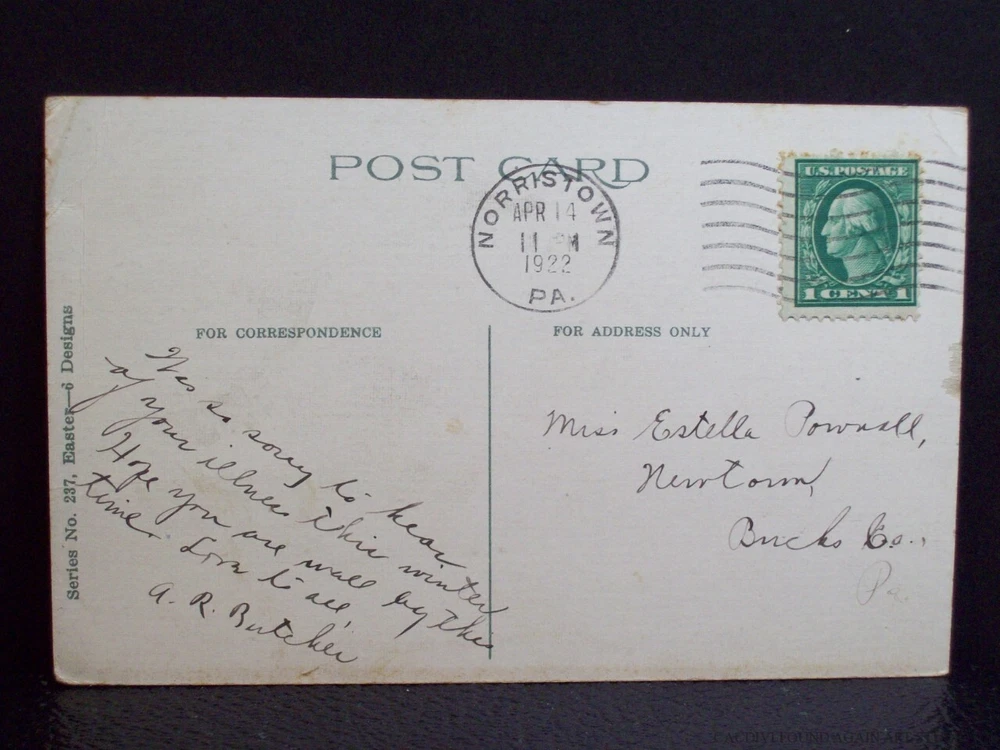 POST CARD
NORRISTOWN
APR 14
11 M
1922
PA.
U.S. POSTAGE
1 CENT 1
FOR CORRESPONDENCE
FOR ADDRESS ONLY
Series No. 237, Easter—6 Designs
Was so sorry to hear
of your illness this winter
Hope you are well by this
time. Love to all,
A. R. Butcher
Miss Estella Pownall,
Newtown,
Bucks Co.,
Pa.